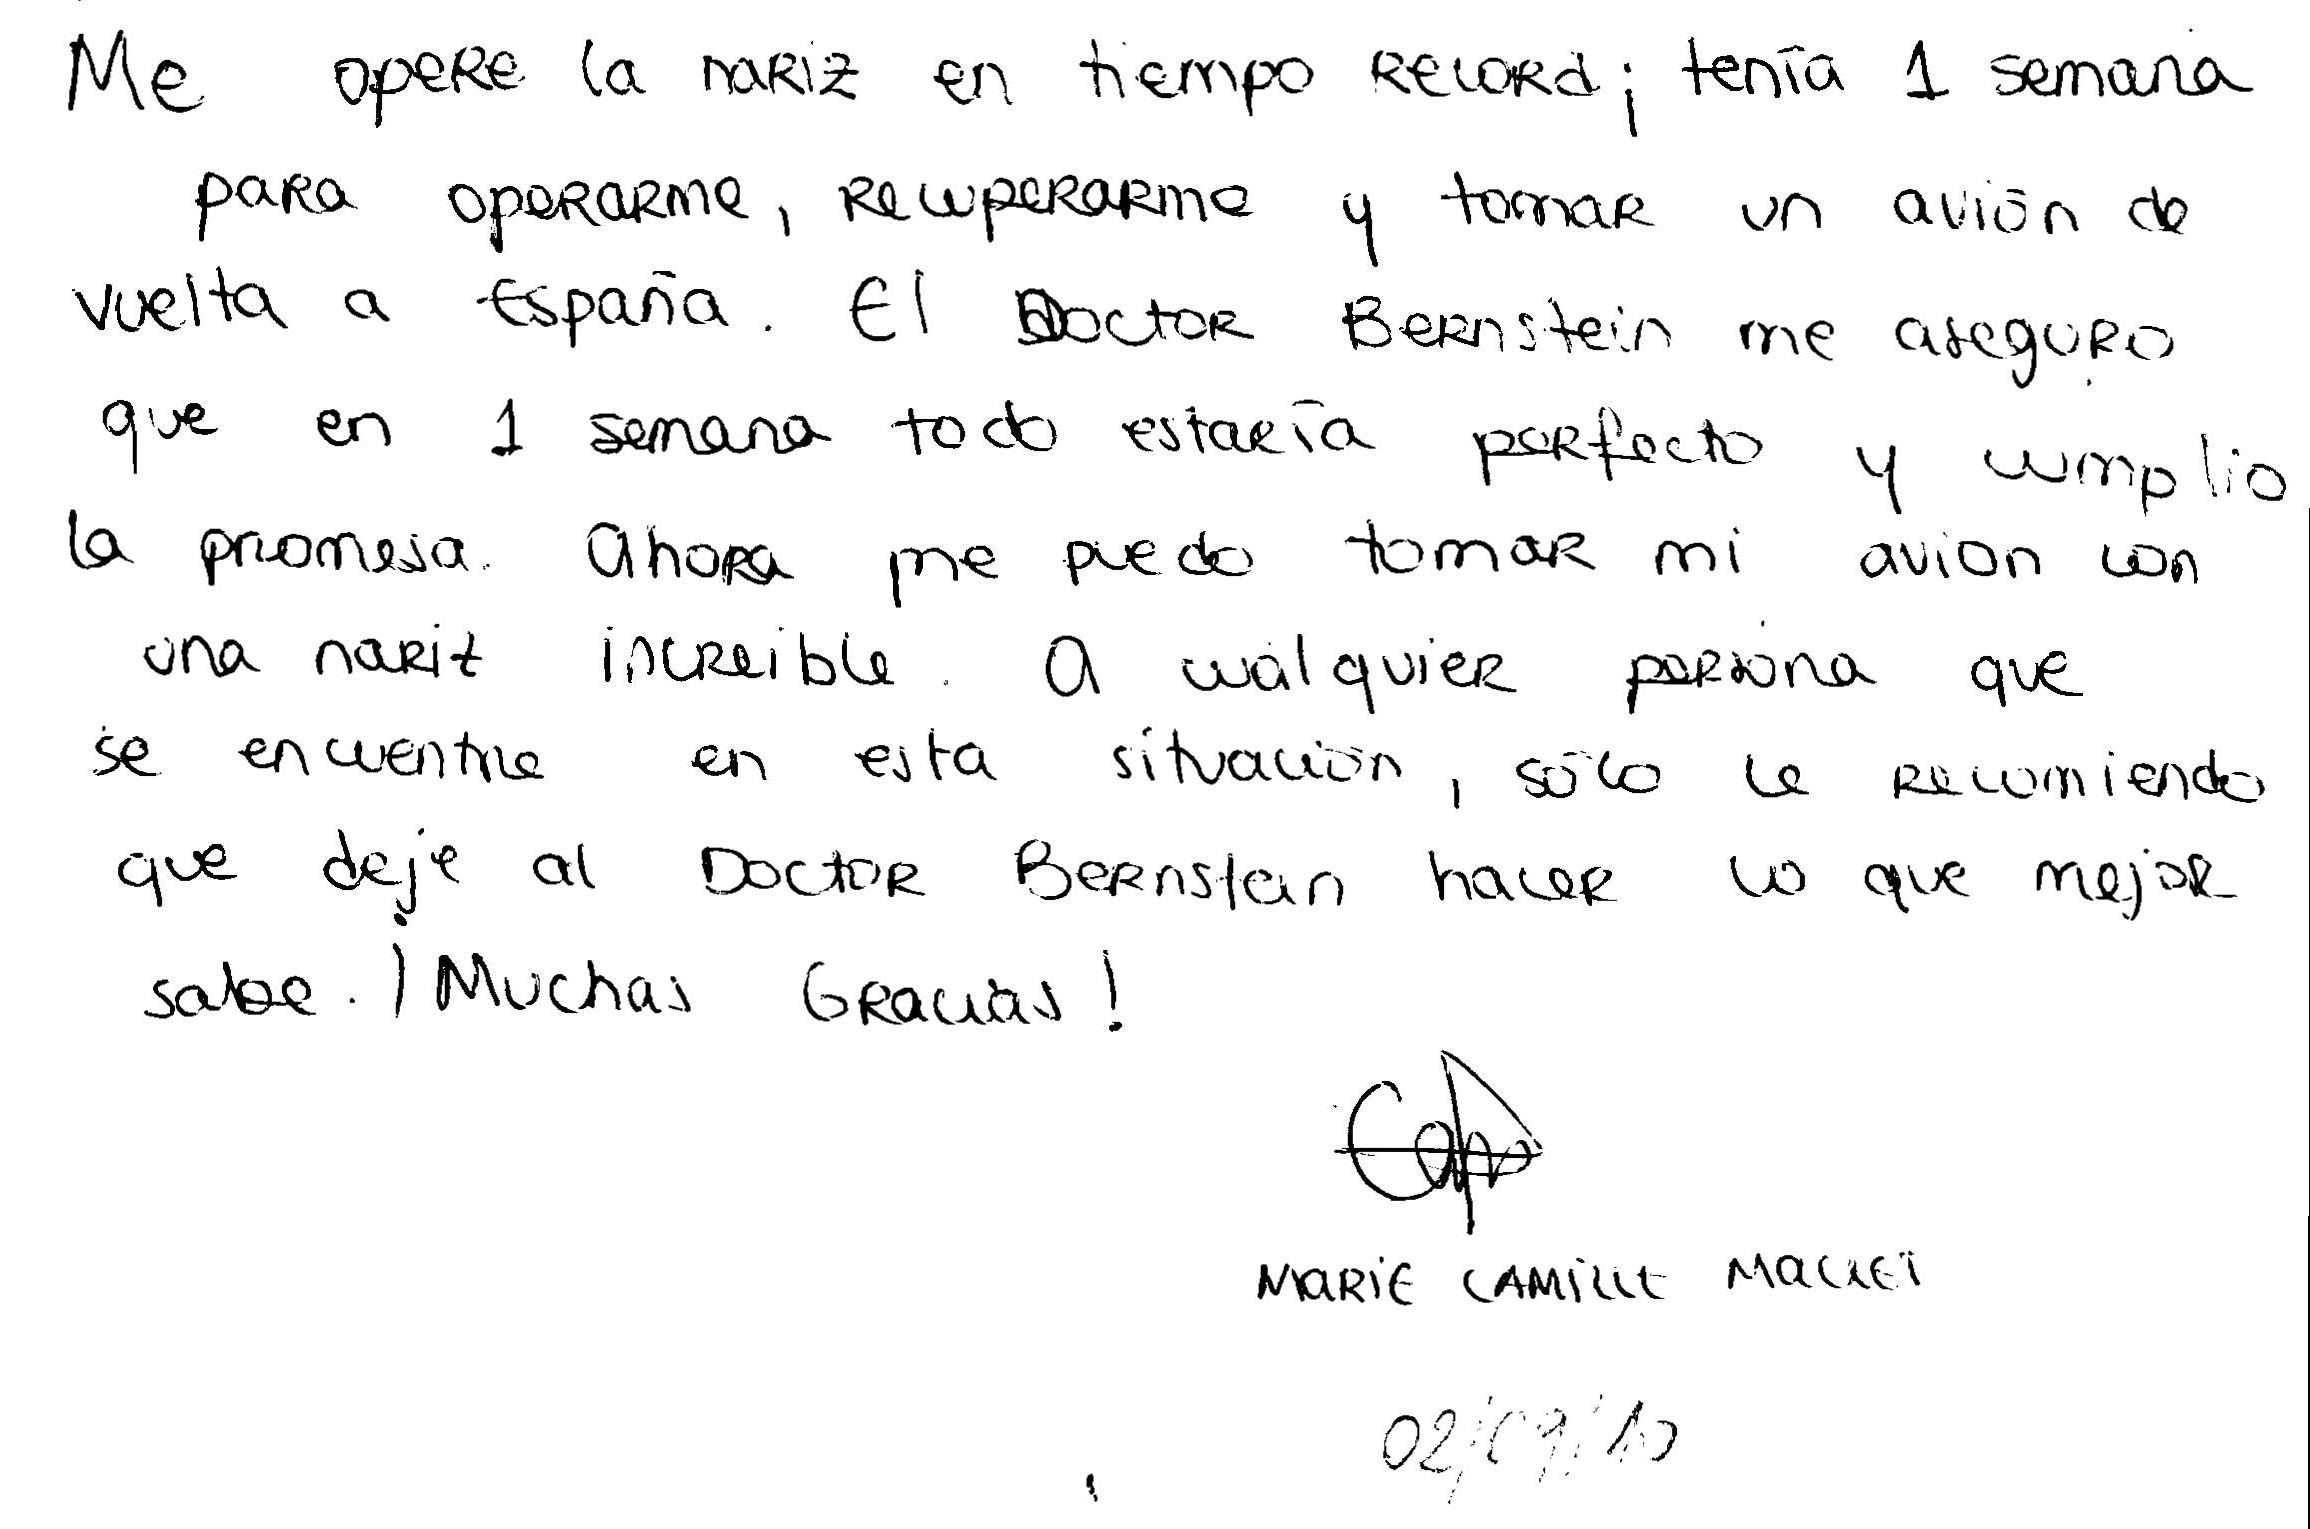 Me opere la nariz en tiempo record; tenía 1 semana
para operarme, recuperarme y tomar un avión de
vuelta a España. El Doctor Bernstein me aseguro
que en 1 semana todo estaría perfecto y cumplio
la promesa. Ahora me puedo tomar mi avion con
una nariz increible. A cualquier persona que
se encuentre en esta situación, sólo le recomiendo
que deje al Doctor Bernstein hacer lo que mejor
sabe. ¡Muchas Gracias!
MARIE CAMILLE
02/09/10